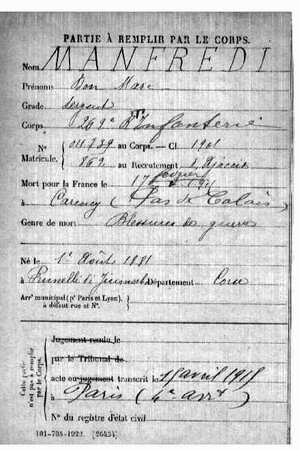 PARTIE À REMPLIR PAR LE CORPS.
Nom MANFREDI
Prénoms Don Marc
Grade Sergent
Corps 269e Rgt d'Infanterie
N° 011739 au Corps. — Cl. 1901
Matricule. 862 au Recrutement Ajaccio
Mort pour la France le 17 février 191
à Carency (Pas de Calais)
Genre de mort Blessures de guerre
Né le 1er Août 1881
à Département Corse
Arrt municipal (pr Paris et Lyon),
à défaut rue et N°.
Cette partie n'est pas à remplir par le Corps.
Jugement rendu le
par le Tribunal de
acte ou jugement transcrit le 15 avril 1915
à Paris (4e arrt)
N° du registre d'état civil
101-708-1922. [26434]